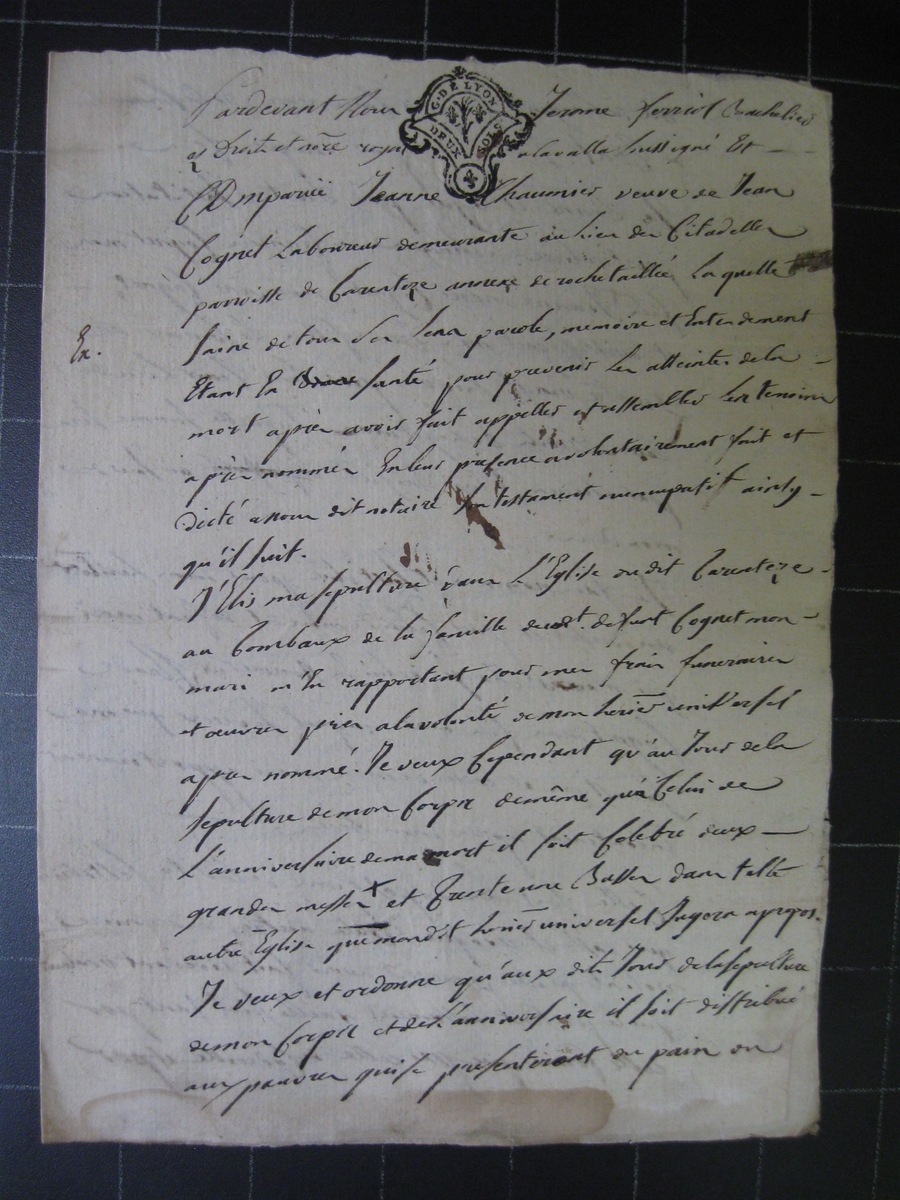 Pardevant Nous Jerome ferriol Bachelier
G. DE LYON
DEUX SOLS
es Droits et no.re royal a lavalla soussigné Et
Comparüe Jeanne Chaumier veuve de Jean
Cognet Laboureur demeurante au lieu des Citadelles
parroisse de tarentaze annexe de rochetaillée Laquelle
saine de tous ses sens parole, memoire et Entendement
Ex.
Etant En santé pour prevenir les atteintes de la
mort après avoir fait appeller et assembler les temoins
après nommés En leur presence a volontairement fait et
dicté a nous dit notaire son testament nuncupatif ainsy
qu'il suit.
J'Elis ma sepulture dans L'Eglise du dit Tarentaze
au Tombaux de la famille dudt. defunt Cognet mon
mari m'En rapportant pour mes frais funeraires
et oeuvres pies a la volonté de mon herier. universel
apres nommé. Je veux Cependant qu'au Jour de la
sepulture de mon Corps de même qu'a Celui de
L'anniversaire de ma mort il soit Celebré deux
grandes messes + et Trente une Basses dans telle
autre Eglise que mondt. herier universel Jugera apropos.
Je veux et ordonne qu'aux dits Jour de la sepulture
de mon Corps et de L'anniversaire il soit distribué
aux pauvres qui se presenteront du pain ou